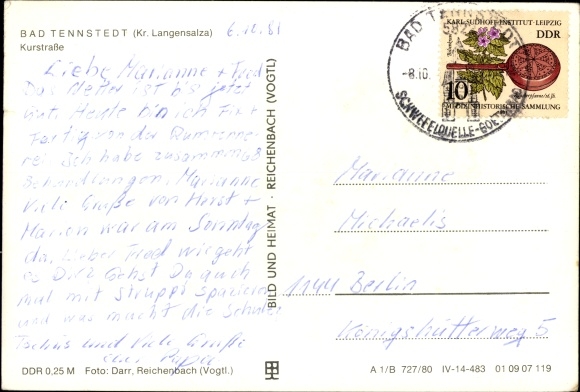 BAD TENNSTEDT (Kr. Langensalza)
Kurstraße
6.10.81
Liebe Marianne + Fred
Das Wetter ist bis jetzt
gut. Heute bin ich Fix +
Fertig von der Rumrenne-
rei. Ich habe zusammen 68
Behandlungen. Marianne
viele Grüße von Horst +
Marion war am Sonntag
da. Lieber Fred wie geht
es Dir? Gehst Du auch
mal mit Struppi spazieren
und was macht die Schule.
Tschüs und viele Grüße
euer Papa
DDR 0,25 M Foto: Darr, Reichenbach (Vogtl.)
BILD UND HEIMAT · REICHENBACH (VOGTL)
BAD TENNSTEDT
582
-8.10.
SCHWEFELQUELLE-GOETHE
KARL-SUDHOFF-INSTITUT · LEIPZIG
DDR
10
MEDIZINHISTORISCHE SAMMLUNG
Marianne
Michaelis
1144 Berlin
Königshütterweg 5
A 1/B 727/80 IV-14-483 01 09 07 119